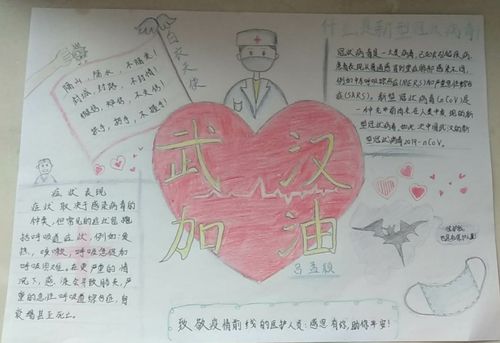 什么是新型冠状病毒!
白衣天使
隔山,隔水,不隔爱!
封城,封路,不封情!
冠状病毒是一大类病毒,已知会引起疾病,
患者表现从普通感冒到重症肺部感染不同,
例如中东呼吸综合征(MERS)和严重急性呼吸综合征
(SARS)。新型冠状病毒(nCoV)是
一种先前尚未在人类中发现的新
型冠状病毒,如此次中国武汉的新
型冠状病毒2019-nCoV。
武汉
加油
症状表现
症状取决于感染病毒的
种类,但常见的症状包括
呼吸道症状,例如:发
热,咳嗽,呼吸急促和
呼吸困难。在更严重的情
况下,感染会导致肺炎,严
重的急性呼吸道综合征,肾
衰竭甚至死亡。
致敬疫情前线的医护人员:感恩有你,助你平安!